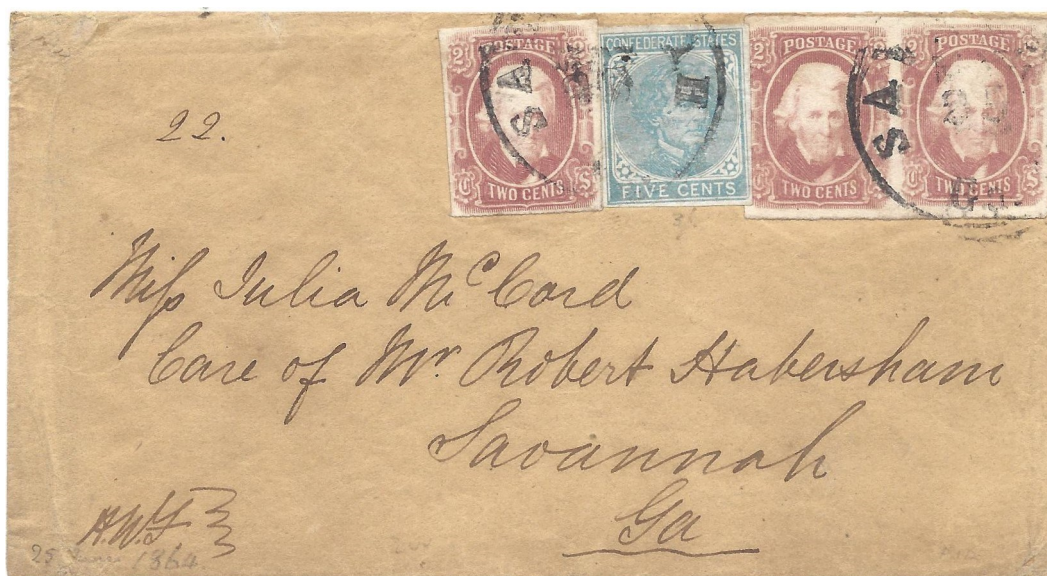 2 POSTAGE 2
C TWO CENTS S
CONFEDERATE STATES
FIVE CENTS
2 POSTAGE
C TWO CENTS
POSTAGE
TWO CENTS S
SA H
SA
G
22.
Miſs Julia McCord
Care of Mr. Robert Habersham
Savannah
Ga
25 June 1864